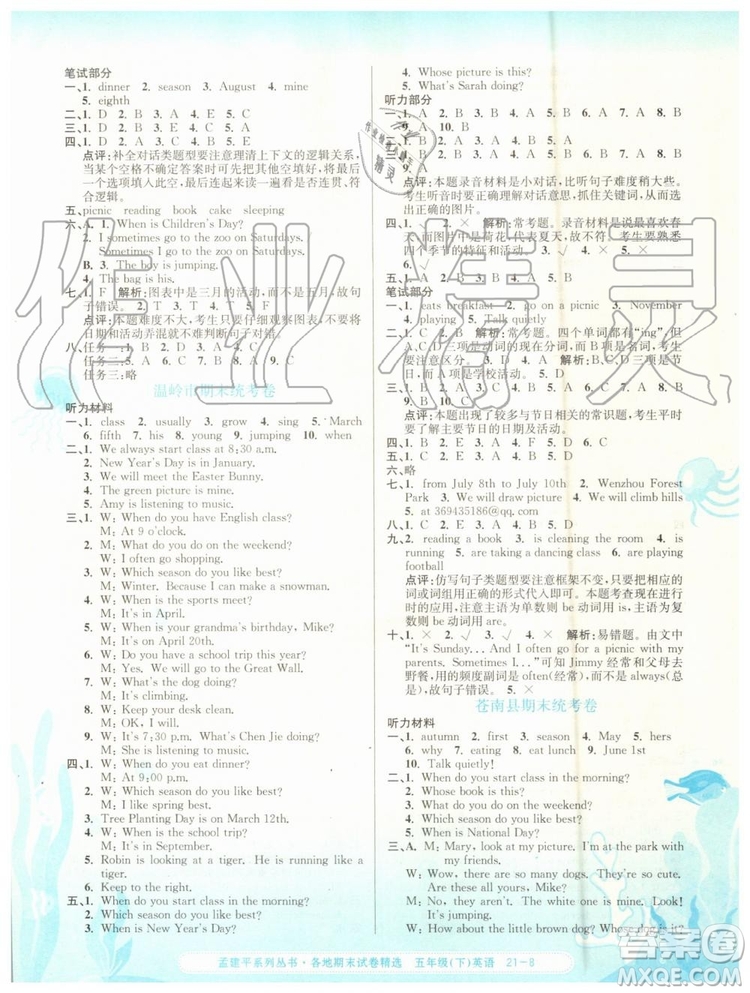 笔试部分
一、1. dinner 2. season 3. August 4. mine
5. eighth
二、1. D 2. B 3. A 4. E 5. C
三、1. D 2. C 3. B 4. A 5. D
四、1. D 2. E 3. A 4. C 5. B
点评：补全对话类题型要注意理清上下文的逻辑关系，
当某个空格不确定答案时可先放一放，做完后，将最后
一个选项填入此空，通读一遍后，检查是否通顺，是否
符合逻辑。
五、picnic reading book cake sleeping
六、A. 1. When is Children's Day?
2. I sometimes go to the zoo on Saturdays.
Sometimes I go to the zoo on Saturdays.
B. 3. The boy is jumping.
4. The bag is his.
七、1. F 解析：图表中是三月的活动，而不是五月，故句
子错误。 2. T 3. T 4. T
点评：本题难度不大，考生只要仔细观察图表，不要将
日期和活动弄混就不难判断句子对错。
八、任务一：1. A 2. B 3. C
任务二：4. C 5. A
任务三：略
温岭市期末统考卷
听力材料
一、1. class 2. usually 3. grow 4. sing 5. March
6. fifth 7. his 8. running 9. those 10. when
二、1. We always start class at 8:30 a.m.
2. New Year's Day is in January.
3. We will meet the Easter Bunny.
4. The green picture is mine.
5. Amy is listening to music.
三、1. W: When do you have English class?
M: At 9 o'clock.
2. W: What do you do on the weekend?
M: I often go shopping.
3. W: Which season do you like best?
M: Winter. Because I can make a snowman.
4. W: When is the sports meet?
M: It's in April.
5. W: When is your grandma's birthday, Mike?
M: It's on April 20th.
6. W: Do you have a school trip this year?
M: Yes. We will go to the Great Wall.
7. W: What's the dog doing?
M: It's climbing.
8. W: Keep your desk clean.
M: OK, I will.
9. W: It's 7:30 now. What's Chen Jie doing?
M: She's eating breakfast.
四、1. W: When do you eat dinner?
M: At 6:00 p.m.
2. W: What are these rabbits doing?
M: They're playing with each other.
3. Tree Planting Day is on March 12th.
4. W: When is the school trip?
M: It's in September.
5. Robin is looking at a tiger. He is like a tiger.
6. Keep to the right.
五、1. When do you start class in the morning?
2. Which season do you like best?
3. When is New Year's Day?
4. Whose picture is this?
5. What's Sarah doing?
听力部分
一、1. A 2. B 3. B 4. A 5. A 6. A 7. A 8. B
9. A 10. B
二、1. C 2. D 3. A 4. E 5. B
三、1. B 2. A 3. B 4. A 5. A 6. A 7. A 8. B
9. B
点评：本题录音材料是小对话，比听句子难度稍大些。
考生听音时要正确理解对话意思，抓住关键词，找出正
确的图片。
四、1. √ 2. × 解析：常考题。录音材料说的是最喜欢春
天，而图片中是荷花，代表夏天，故为×。考生要熟悉
四个季节的特征和相关活动。 3. × 4. √ 5. ×
6. √
五、1. A 2. B 3. A 4. B 5. A
笔试部分
一、1. eats breakfast 2. go on a picnic 3. November
4. playing 5. Talk quietly
二、1. C 2. B 解析：常考题。四个单词都有“ing”，但
A、C、D三项是动词的现在分词，B项是名词，故选B。
3. C 4. B 5. D 6. A 解析：B、C、D三项都与季
节有关，而A项是节日，故选A。
三、1. C 2. B 3. B 4. A 5. C 6. A 7. B 8. C
9. C 10. B
点评：本题出现了较多与节日相关的常识题，考生平时
要了解主要节日的日期及活动。
四、1. D 2. E 3. C 4. A 5. F 6. B
五、1. A 2. B 3. B 4. A 5. C
六、略
七、1. from July 8th to July 10th 2. Wenzhou Forest
Park 3. We will draw pictures 4. We will climb hills
5. at 369435186@qq.com
八、1. C 2. A 3. E 4. B 5. D
九、2. reading a book 3. is cleaning the room 4. is
running 5. are taking a dancing class 6. are playing
football
点评：仿写句子类题型要注意框架不变，只要将相应的
词或词组用相应的形式代入即可。本题考查现在进行
时的应用，注意当主语为单数则 be 动词用 is，主语为
复数则 be 动词用 are。
十、1. × 2. √ 3. √ 4. × 解析：易错题。由文中
“It's Sunday... And I often go for a picnic with my
parents. Sometimes I...”可知 Jimmy 经常和父母去
野餐，用的频度副词是 often，故句子错误。 5. ×
苍南县期末统考卷
听力材料
一、1. autumn 2. first 3. sister's 4. sleeping 5. They
6. why 7. eating 8. eat lunch 9. June 1st
10. Talk quietly!
二、1. When do you start class in the morning?
2. Whose book is this?
3. What do you do on the weekend?
4. When is National Day?
三、A. M: Mary, look at my picture. I'm at the park with
my friends.
W: Wow! I can see many dogs. Cute dogs!
These yellow dogs are yours, Mike?
M: Yes, they are mine. The white one is mine. Look!
It's jumping.
W: How about the little brown dog? Whose is it?
M: No, they are not.
孟建平系列丛书·各地期末试卷精选 五年级(下)英语 21－8